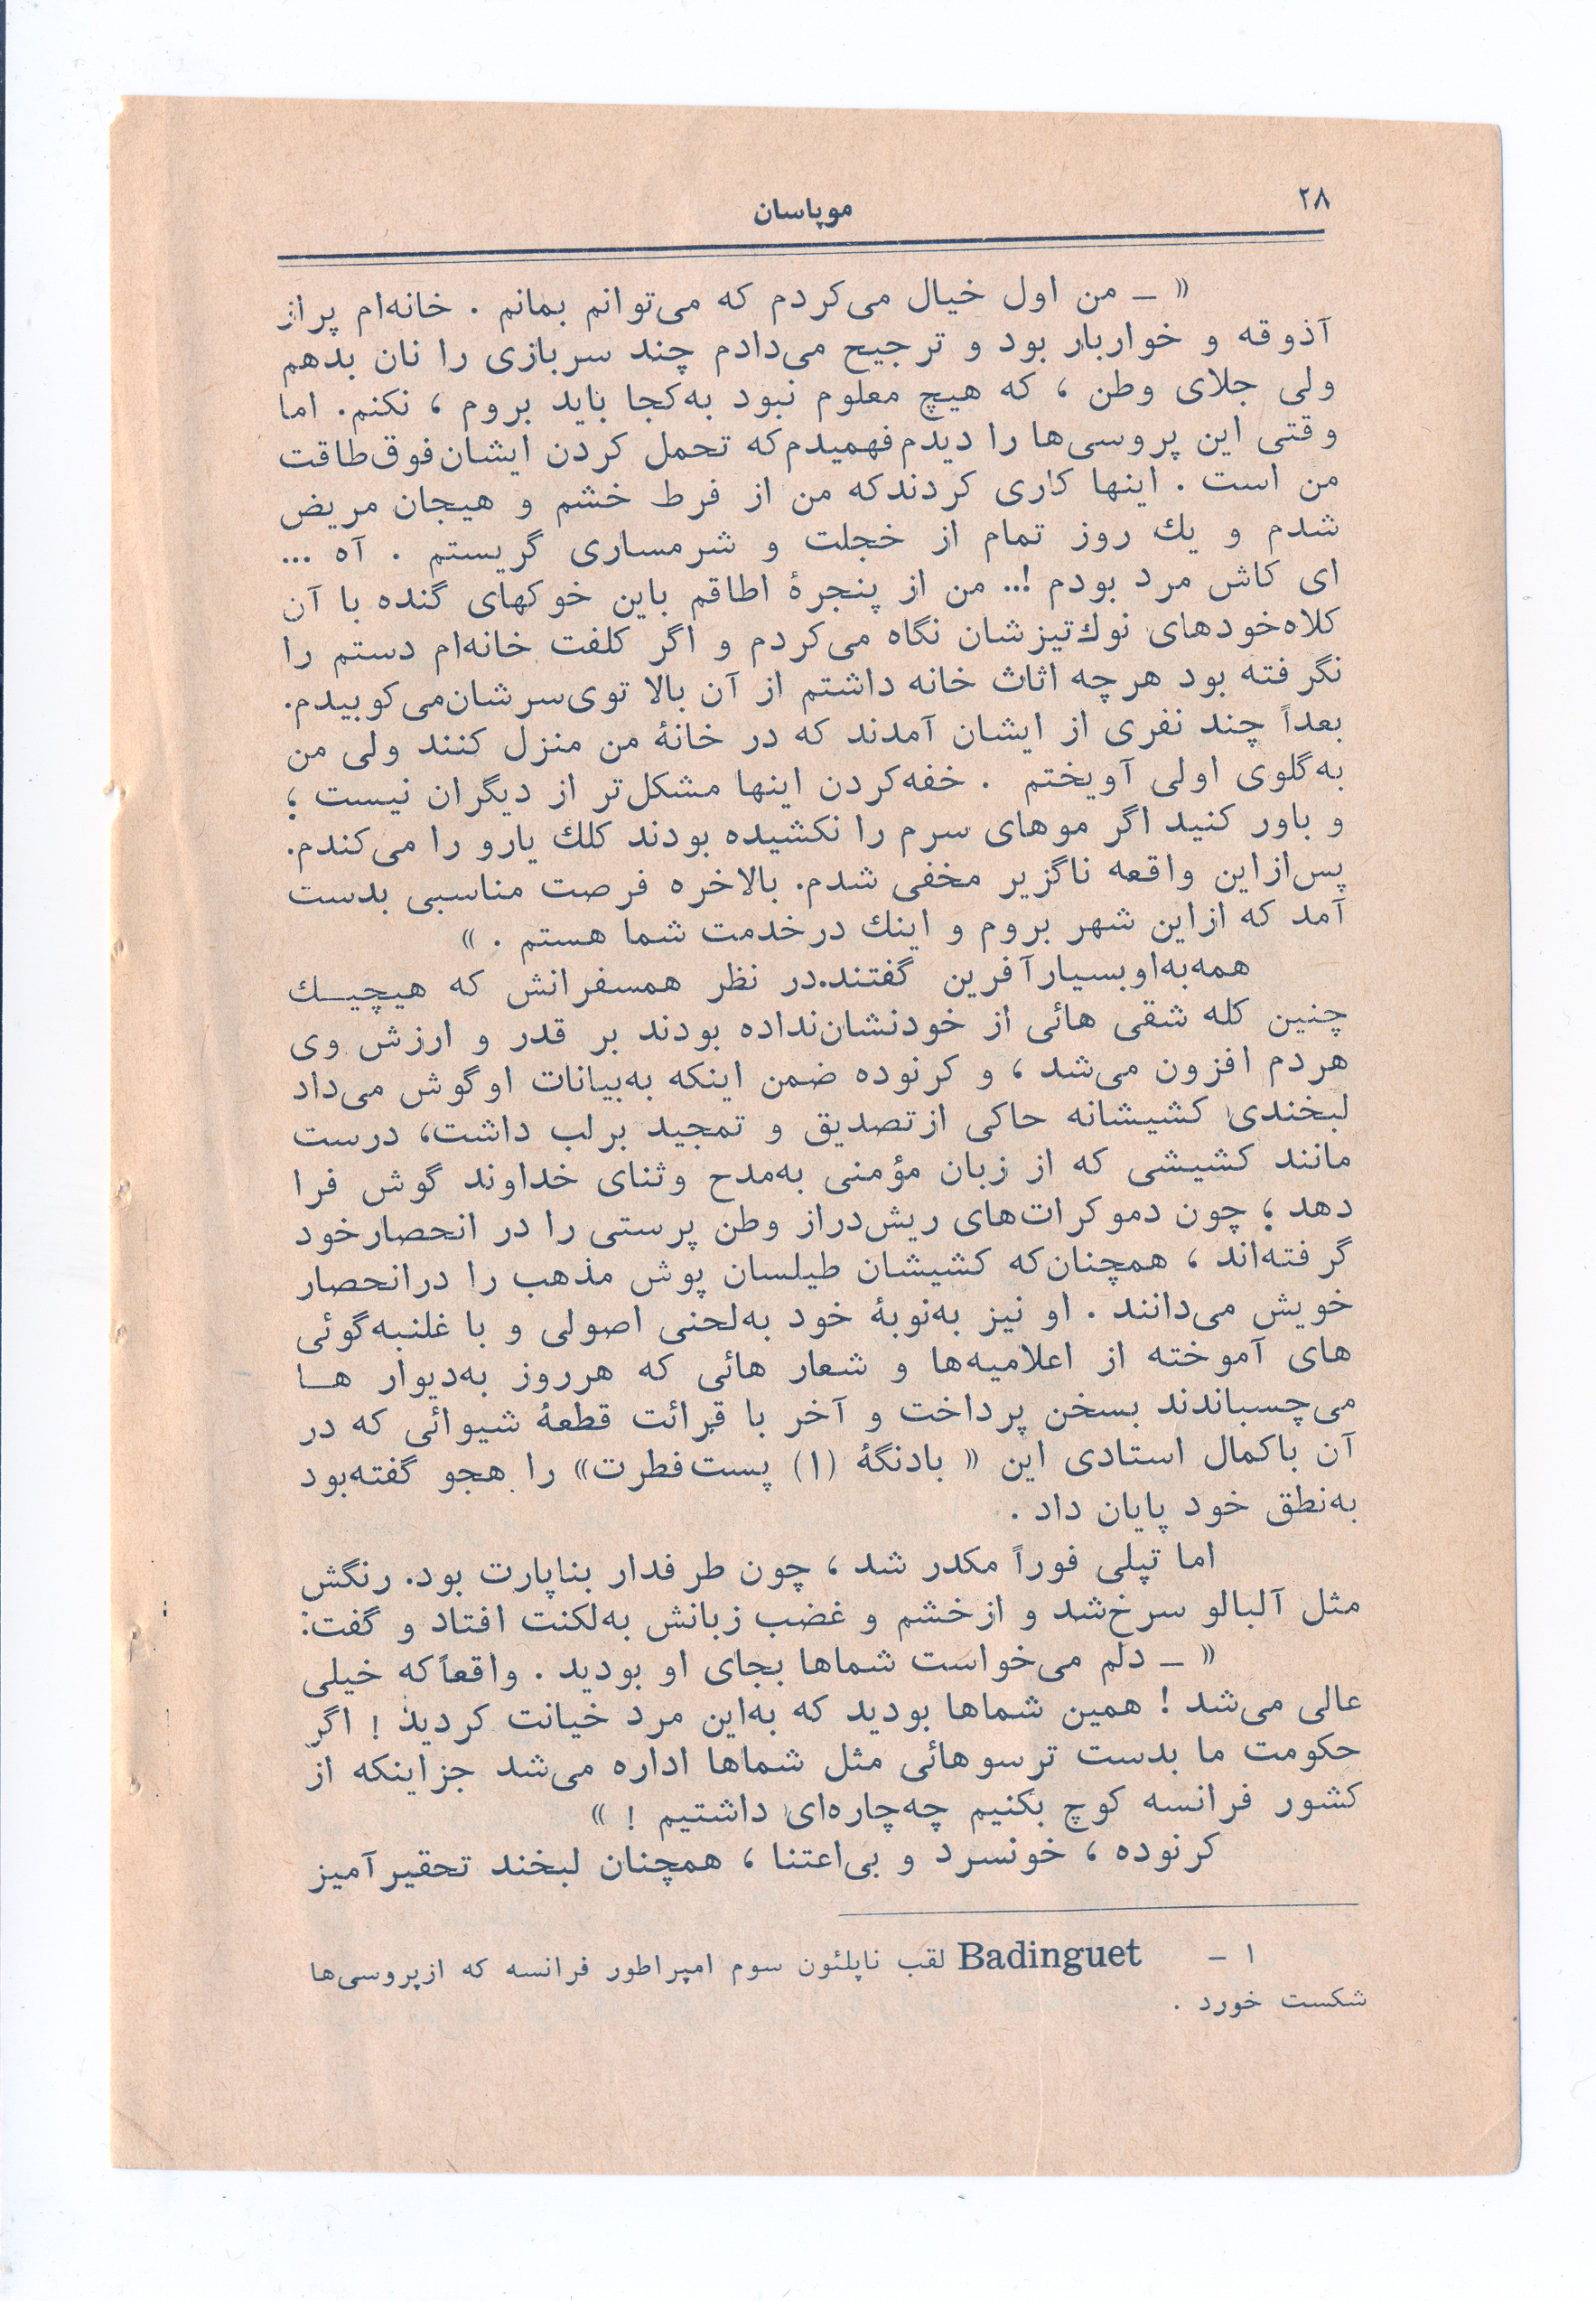 ۲۸
موپاسان
« ـ من اول خیال می‌کردم که می‌توانم بمانم . خانه‌ام پراز
آذوقه و خواربار بود و ترجیح می‌دادم چند سربازی را نان بدهم
ولی جلای وطن ، که هیچ معلوم نبود به‌کجا باید بروم ، نکنم. اما
وقتی این پروسی‌ها را دیدم فهمیدم که تحمل کردن ایشان فوق‌طاقت
من است . اینها کاری کردند که من از فرط خشم و هیجان مریض
شدم و یك روز تمام از خجلت و شرمساری گریستم . آه ...
ای کاش مرد بودم !.. من از پنجرهٔ اطاقم باین خوکهای گنده با آن
کلاه‌خودهای نوك‌تیزشان نگاه می‌کردم و اگر کلفت خانه‌ام دستم را
نگرفته بود هرچه اثاث خانه داشتم از آن بالا توی‌سرشان می‌کوبیدم.
بعداً چند نفری از ایشان آمدند که در خانهٔ من منزل کنند ولی من
به‌گلوی اولی آویختم . خفه‌کردن اینها مشکل‌تر از دیگران نیست ؛
و باور کنید اگر موهای سرم را نکشیده بودند کلك یارو را می‌کندم.
پس‌ازاین واقعه ناگزیر مخفی شدم. بالاخره فرصت مناسبی بدست
آمد که ازاین شهر بروم و اینك درخدمت شما هستم . »
همه‌به‌اوبسیارآفرین گفتند.در نظر همسفرانش که هیچیـــك
چنین کله شقی هائی از خودنشان‌نداده بودند بر قدر و ارزش وی
هردم افزون می‌شد ، و کرنوده ضمن اینکه به‌بیانات اوگوش می‌داد
لبخندی کشیشانه حاکی ازتصدیق و تمجید برلب داشت، درست
مانند کشیشی که از زبان مؤمنی به‌مدح وثنای خداوند گوش فرا
دهد ؛ چون دموکرات‌های ریش‌دراز وطن پرستی را در انحصارخود
گرفته‌اند ، همچنان‌که کشیشان طیلسان پوش مذهب را درانحصار
خویش می‌دانند . او نیز به‌نوبهٔ خود به‌لحنی اصولی و با غلنبه‌گوئی
های آموخته از اعلامیه‌ها و شعار هائی که هرروز به‌دیوار هــا
می‌چسباندند بسخن پرداخت و آخر با قرائت قطعهٔ شیوائی که در
آن باکمال استادی این « بادنگهٔ (۱) پست‌فطرت» را هجو گفته‌بود
به‌نطق خود پایان داد .
اما تپلی فوراً مکدر شد ، چون طرفدار بناپارت بود. رنگش
مثل آلبالو سرخ‌شد و ازخشم و غضب زبانش به‌لکنت افتاد و گفت:
« ـ دلم می‌خواست شماها بجای او بودید . واقعاً که خیلی
عالی می‌شد ! همین شماها بودید که به‌این مرد خیانت کردید ! اگر
حکومت ما بدست ترسوهائی مثل شماها اداره می‌شد جزاینکه از
کشور فرانسه کوچ بکنیم چه‌چاره‌ای داشتیم ! »
کرنوده ، خونسرد و بی‌اعتنا ، همچنان لبخند تحقیرآمیز
۱ ـ Badinguet لقب ناپلئون سوم امپراطور فرانسه که ازپروسی‌ها
شکست خورد .